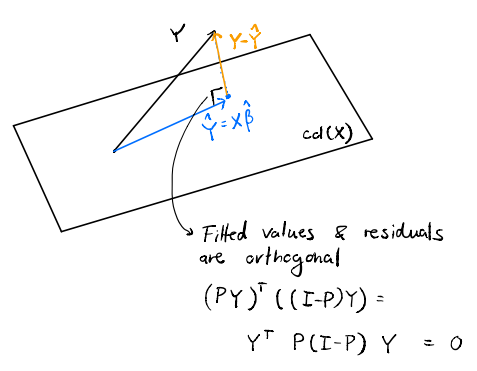 Y
Y-Ŷ
Ŷ = Xβ̂
col(X)
Fitted values & residuals
are orthogonal
(PY)ᵀ((I-P)Y) =
Yᵀ P(I-P) Y = 0